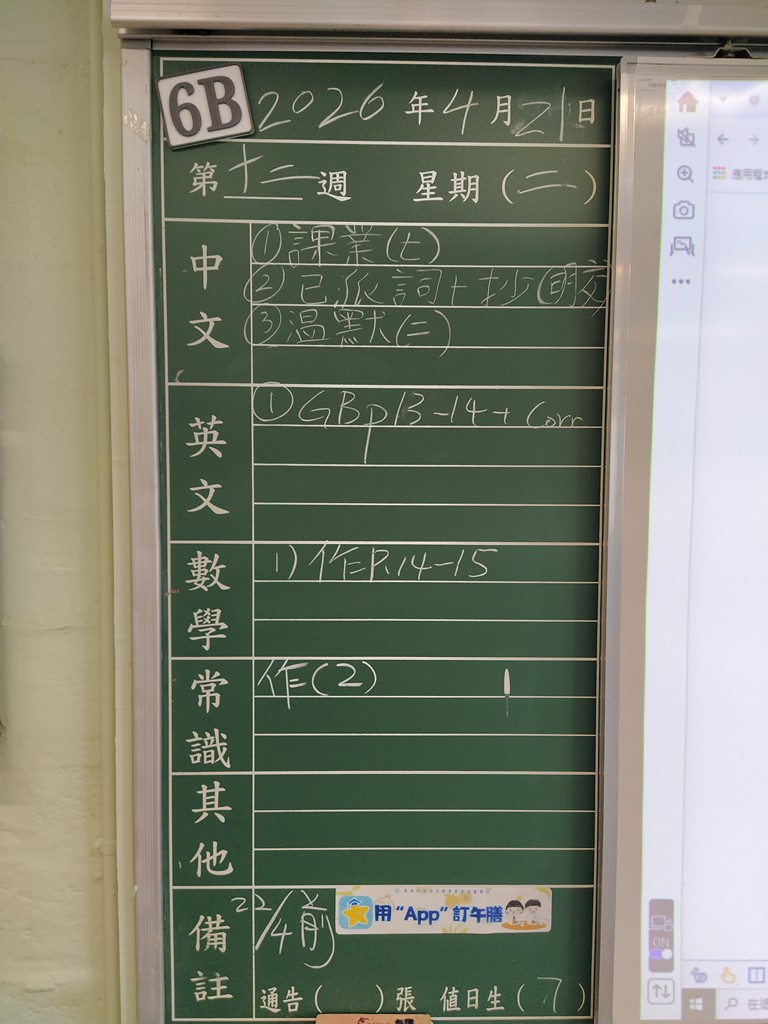 6B 2026年4月21日
第十二週 星期(二)
中文
①課業(七)
②已派詞+抄(明交)
③溫默(二)
英文
①GBp13-14+Corr
數學
1)作P.14-15
常識
作(2)
其他
備註
22/4前
用“App”訂午膳
通告( )張 值日生(7)
應用程式
ON